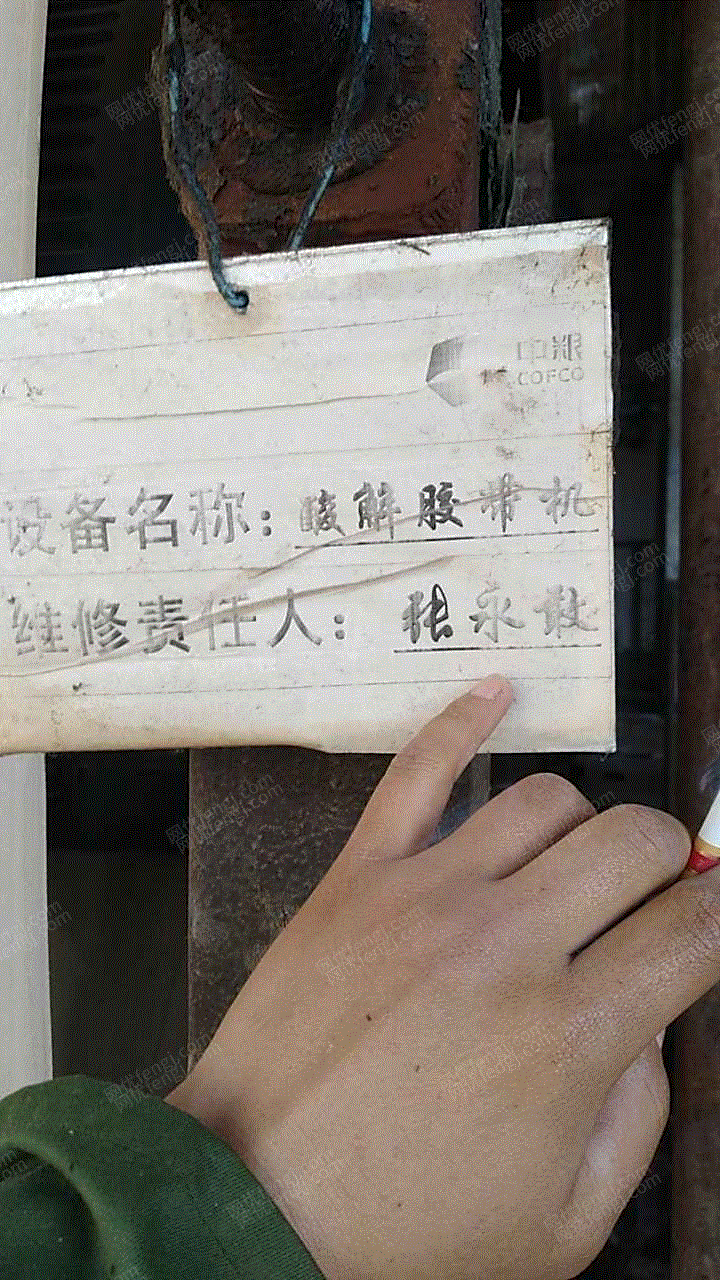 中粮
COFCO
设备名称：酸解胶带机
维修责任人：张永敢
网优fengj.com